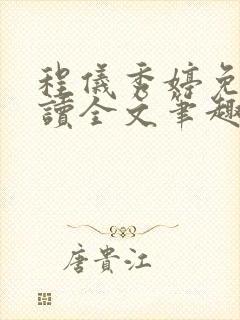 程儀秀婷免
讀全文筆趣
唐貴江